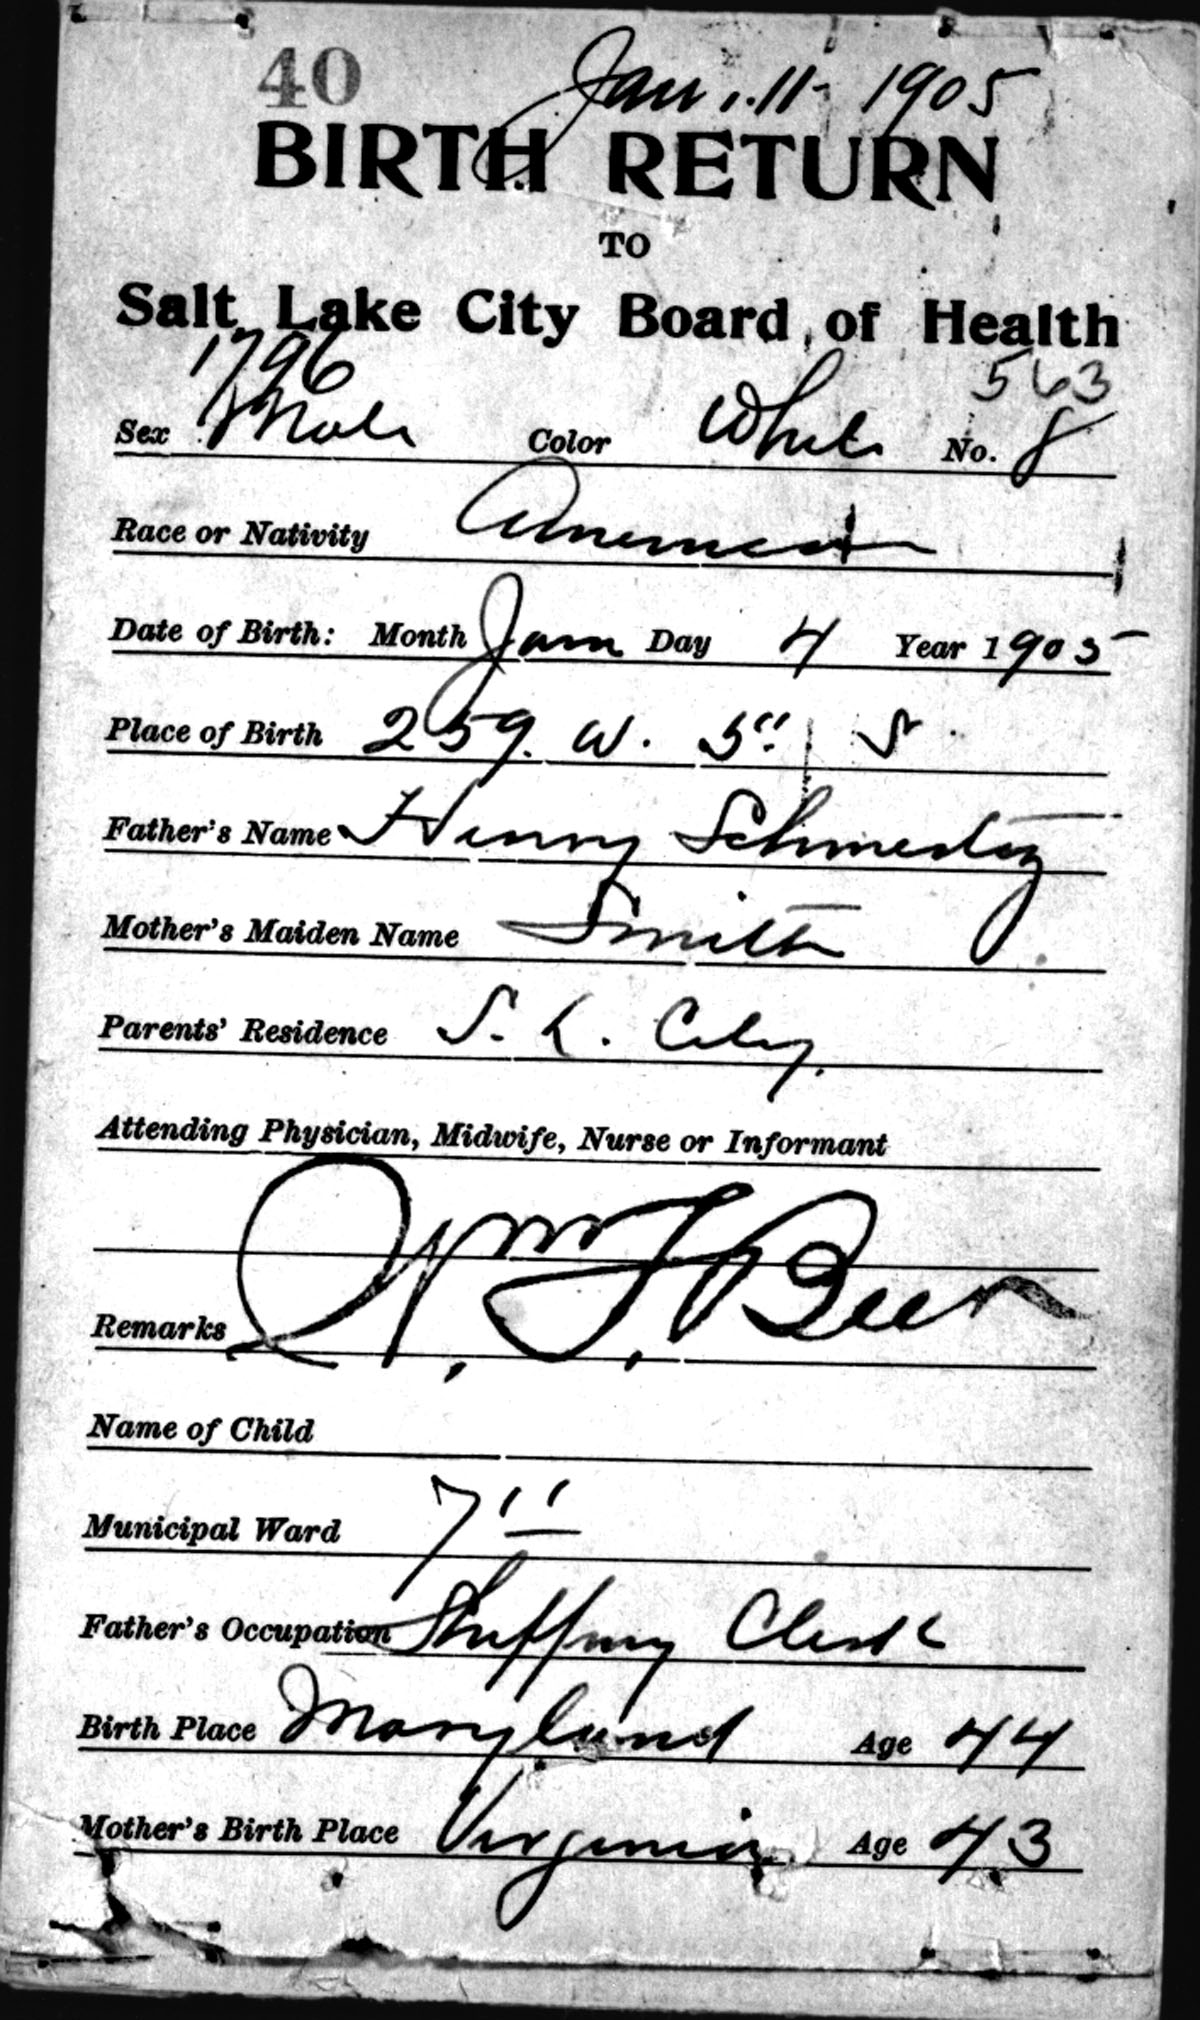 40
Jan. 11 - 1905
BIRTH RETURN
TO
Salt Lake City Board of Health
1796 563
Sex Male Color White No. 8
Race or Nativity American
Date of Birth: Month Jan Day 4 Year 1905
Place of Birth 259. W. 5" S
Father's Name Henry Schmertz
Mother's Maiden Name Smith
Parents' Residence S. L. City.
Attending Physician, Midwife, Nurse or Informant
Wm. F. Beer
Remarks
Name of Child
Municipal Ward 7"
Father's Occupation Clerk
Birth Place Maryland Age 44
Mother's Birth Place Virginia Age 43